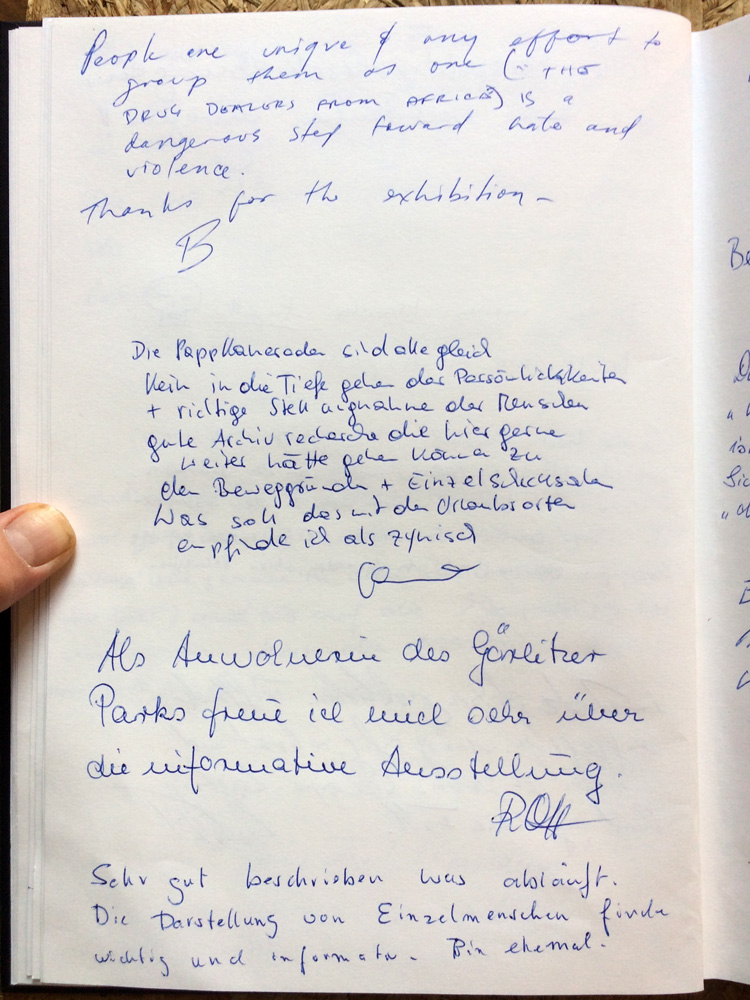 People are unique & any effort to
group them as one (: THE
DRUG DEALERS FROM AFRICA) IS a
dangerous step forward hate and
violence.
Thanks for the exhibition -
B
Die Pappkameraden sind alle gleich
kein in die Tiefe gehen der Persönlichkeiten
+ richtige Stellungnahme der Menschen
gute Archiv recherche die hier gerne
weiter hätte gehen können zu
den Beweggründen + Einzelschicksalen
Was soll das mit den Urlaubsorten
empfinde ich als zynisch
Als Anwohnerin des Görlitzer
Parks freue ich mich sehr über
die informative Ausstellung.
Sehr gut beschrieben was abläuft.
Die Darstellung von Einzelmenschen finde
wichtig und informativ. Bin ehemal.
Be